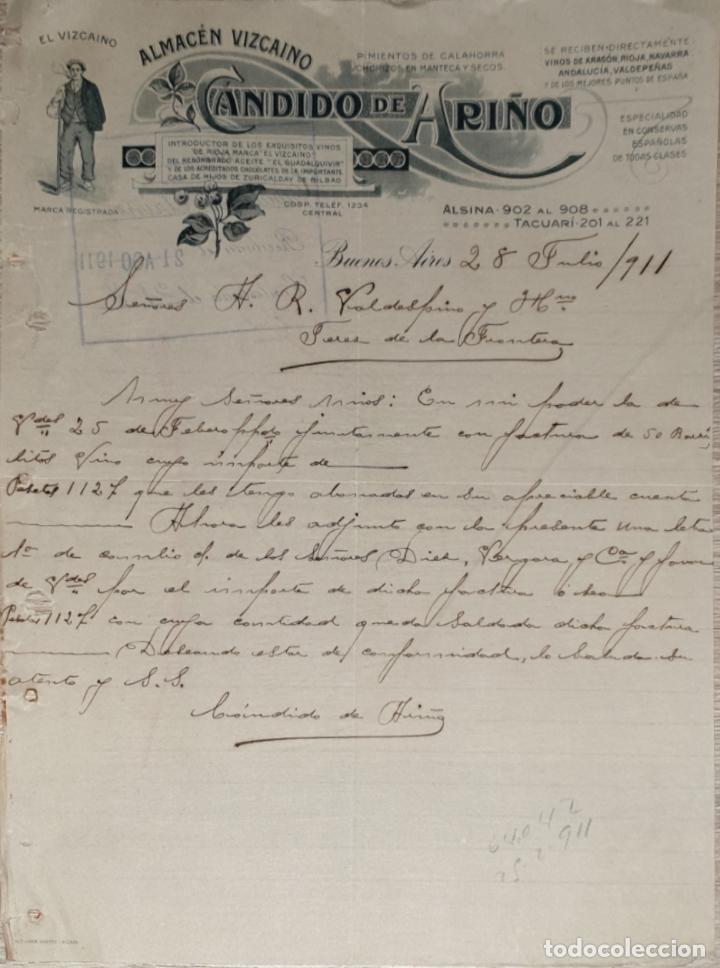 EL VIZCAINO
ALMACÉN VIZCAINO
PIMIENTOS DE CALAHORRA
CHORIZOS EN MANTECA Y SECOS
SE RECIBEN DIRECTAMENTE
VINOS DE ARAGÓN, RIOJA, NAVARRA
ANDALUCÍA, VALDEPEÑAS
Y DE LOS MEJORES PUNTOS DE ESPAÑA
CÁNDIDO DE ARIÑO
ESPECIALIDAD
EN CONSERVAS
ESPAÑOLAS
DE TODAS CLASES
INTRODUCTOR DE LOS EXQUISITOS VINOS
DE RIOJA MARCA "EL VIZCAINO"
DEL RENOMBRADO ACEITE "EL GUADALQUIVIR"
Y DE LOS ACREDITADOS CHOCOLATES DE LA IMPORTANTE
CASA DE HIJOS DE ZURICALDAY DE BILBAO
MARCA REGISTRADA
COOP. TELÉF. 1234
CENTRAL
ALSINA 902 AL 908
TACUARÍ 201 AL 221
21 AGO 1911
Buenos Aires 28 Julio/911
Señores A. R. Valdespino y Hno
Jeres de la Frontera
Muy Señores mios: En mi poder la de
Vdes 25 de Febero ppdo juntamente con factura de 50 Barri
litos Vino cuyo importe de
Pesetas 1127 que les tengo abonadas en su apreciable cuenta
Ahora les adjunto con la presente una letra
1ª de cambio de los Señores Diez, Vergara, y Ca y favor
de Vdes por el importe de dicha factura ó sea
Pesetas 1127 con cuya cantidad queda saldada dicha factura
Deseando estar de conformidad, lo saluda su
atento y S.S.
Cándido de Ariño
911
todocoleccion